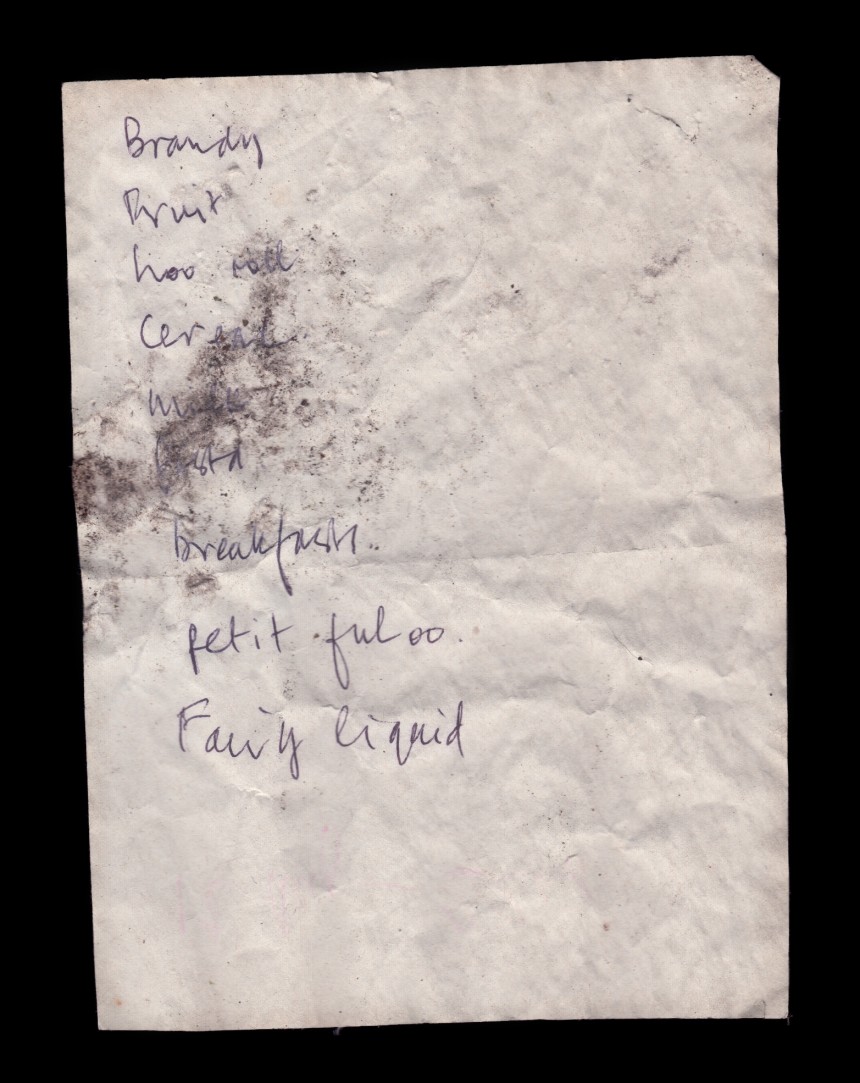 Brandy
Fruit
loo roll
Cereal
milk
pasta
breakfasts..
petit filoo.
Fairy liquid